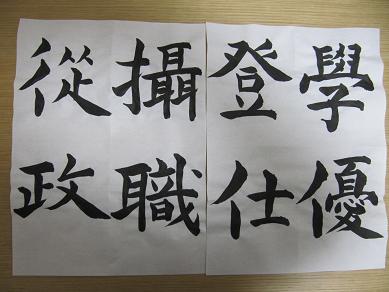 學優
登仕
攝職
從政